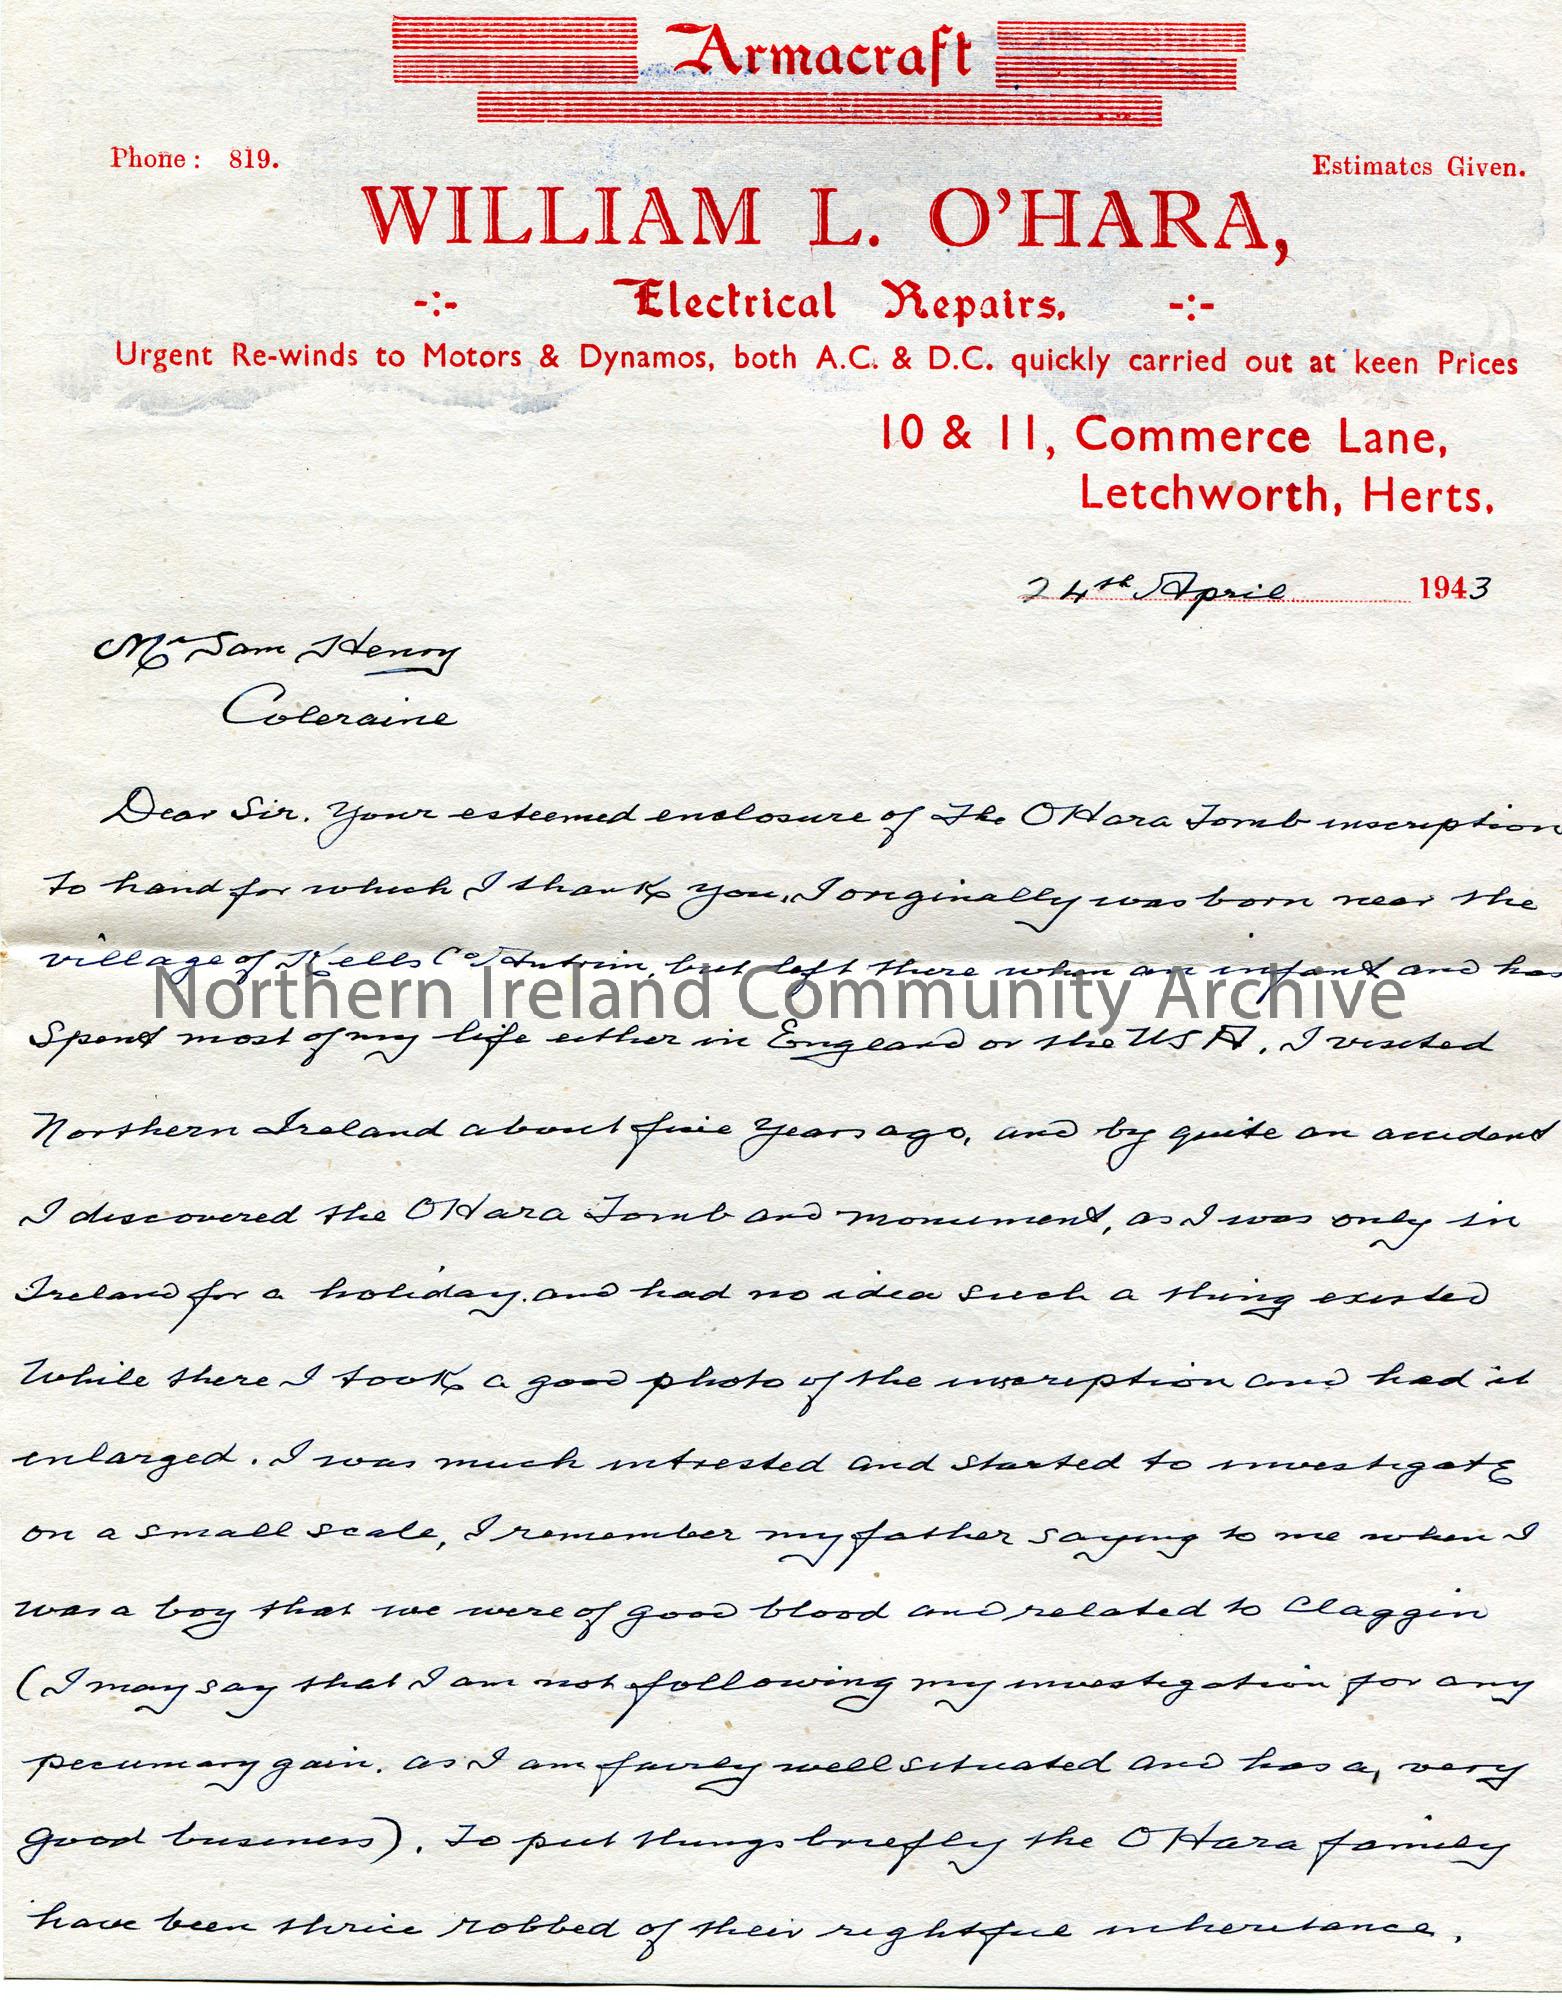 Armacraft
Phone: 819.
Estimates Given.
WILLIAM L. O'HARA,
-:- Electrical Repairs. -:-
Urgent Re-winds to Motors & Dynamos, both A.C. & D.C. quickly carried out at keen Prices
10 & 11, Commerce Lane,
Letchworth, Herts.
24th April 1943
Mr Sam Henry
Coleraine
Dear Sir. Your esteemed enclosure of The OHara Tomb inscription
to hand for which I thank you, I originally was born near the
village of Kells Co Antrim, but left there when an infant and has
Northern Ireland Community Archive
spent most of my life either in England or the USA. I visited
Northern Ireland about five years ago, and by quite an accident
I discovered the OHara Tomb and monument, as I was only in
Ireland for a holiday. and had no idea such a thing existed
While there I took a good photo of the inscription and had it
enlarged. I was much intrested and started to investigate
on a small scale, I remember my father saying to me when I
was a boy that we were of good blood and related to Claggin
(I may say that I am not following my investigation for any
pecumary gain. as I am fairly well situated and has a, very
good business). To put things briefly the OHara family
have been thrice robbed of their rightful inheritance.